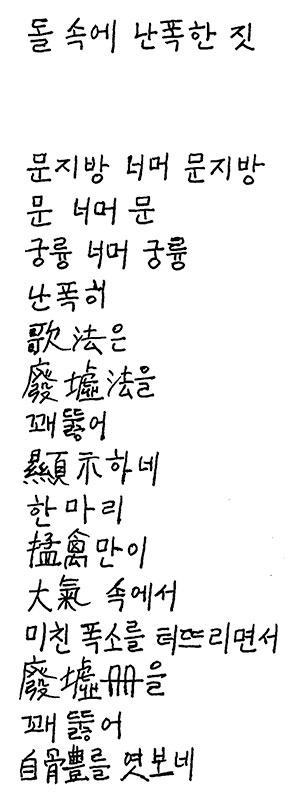 돌 속에 난폭한 짓
문지방 너머 문지방
문 너머 문
궁륭 너머 궁륭
난폭히
歌法은
廢墟法을
꽤뚫어
顯示하네
한 마리
猛禽만이
大氣 속에서
미친 폭소를 터뜨리면서
廢墟冊을
꽤뚫어
白骨豊를 엿보네